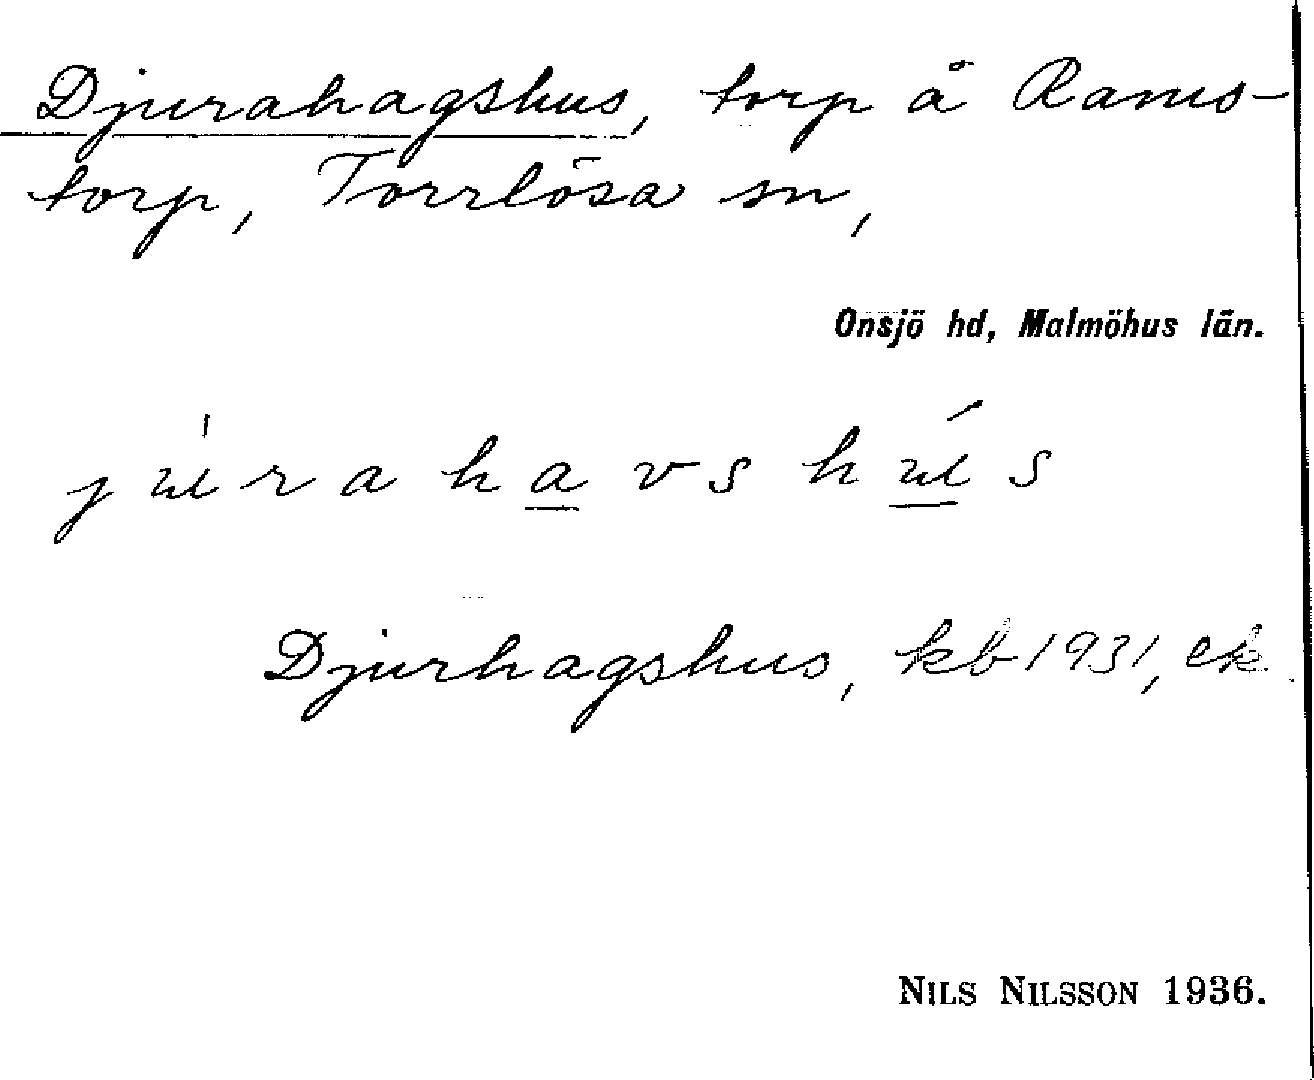 Djurahagshus, torp å Rams-
torp, Torrlösa sn,
Onsjö hd, Malmöhus län.
júrahavshús
Djurhagshus, kb 1931, ek.
NILS NILSSON 1936.